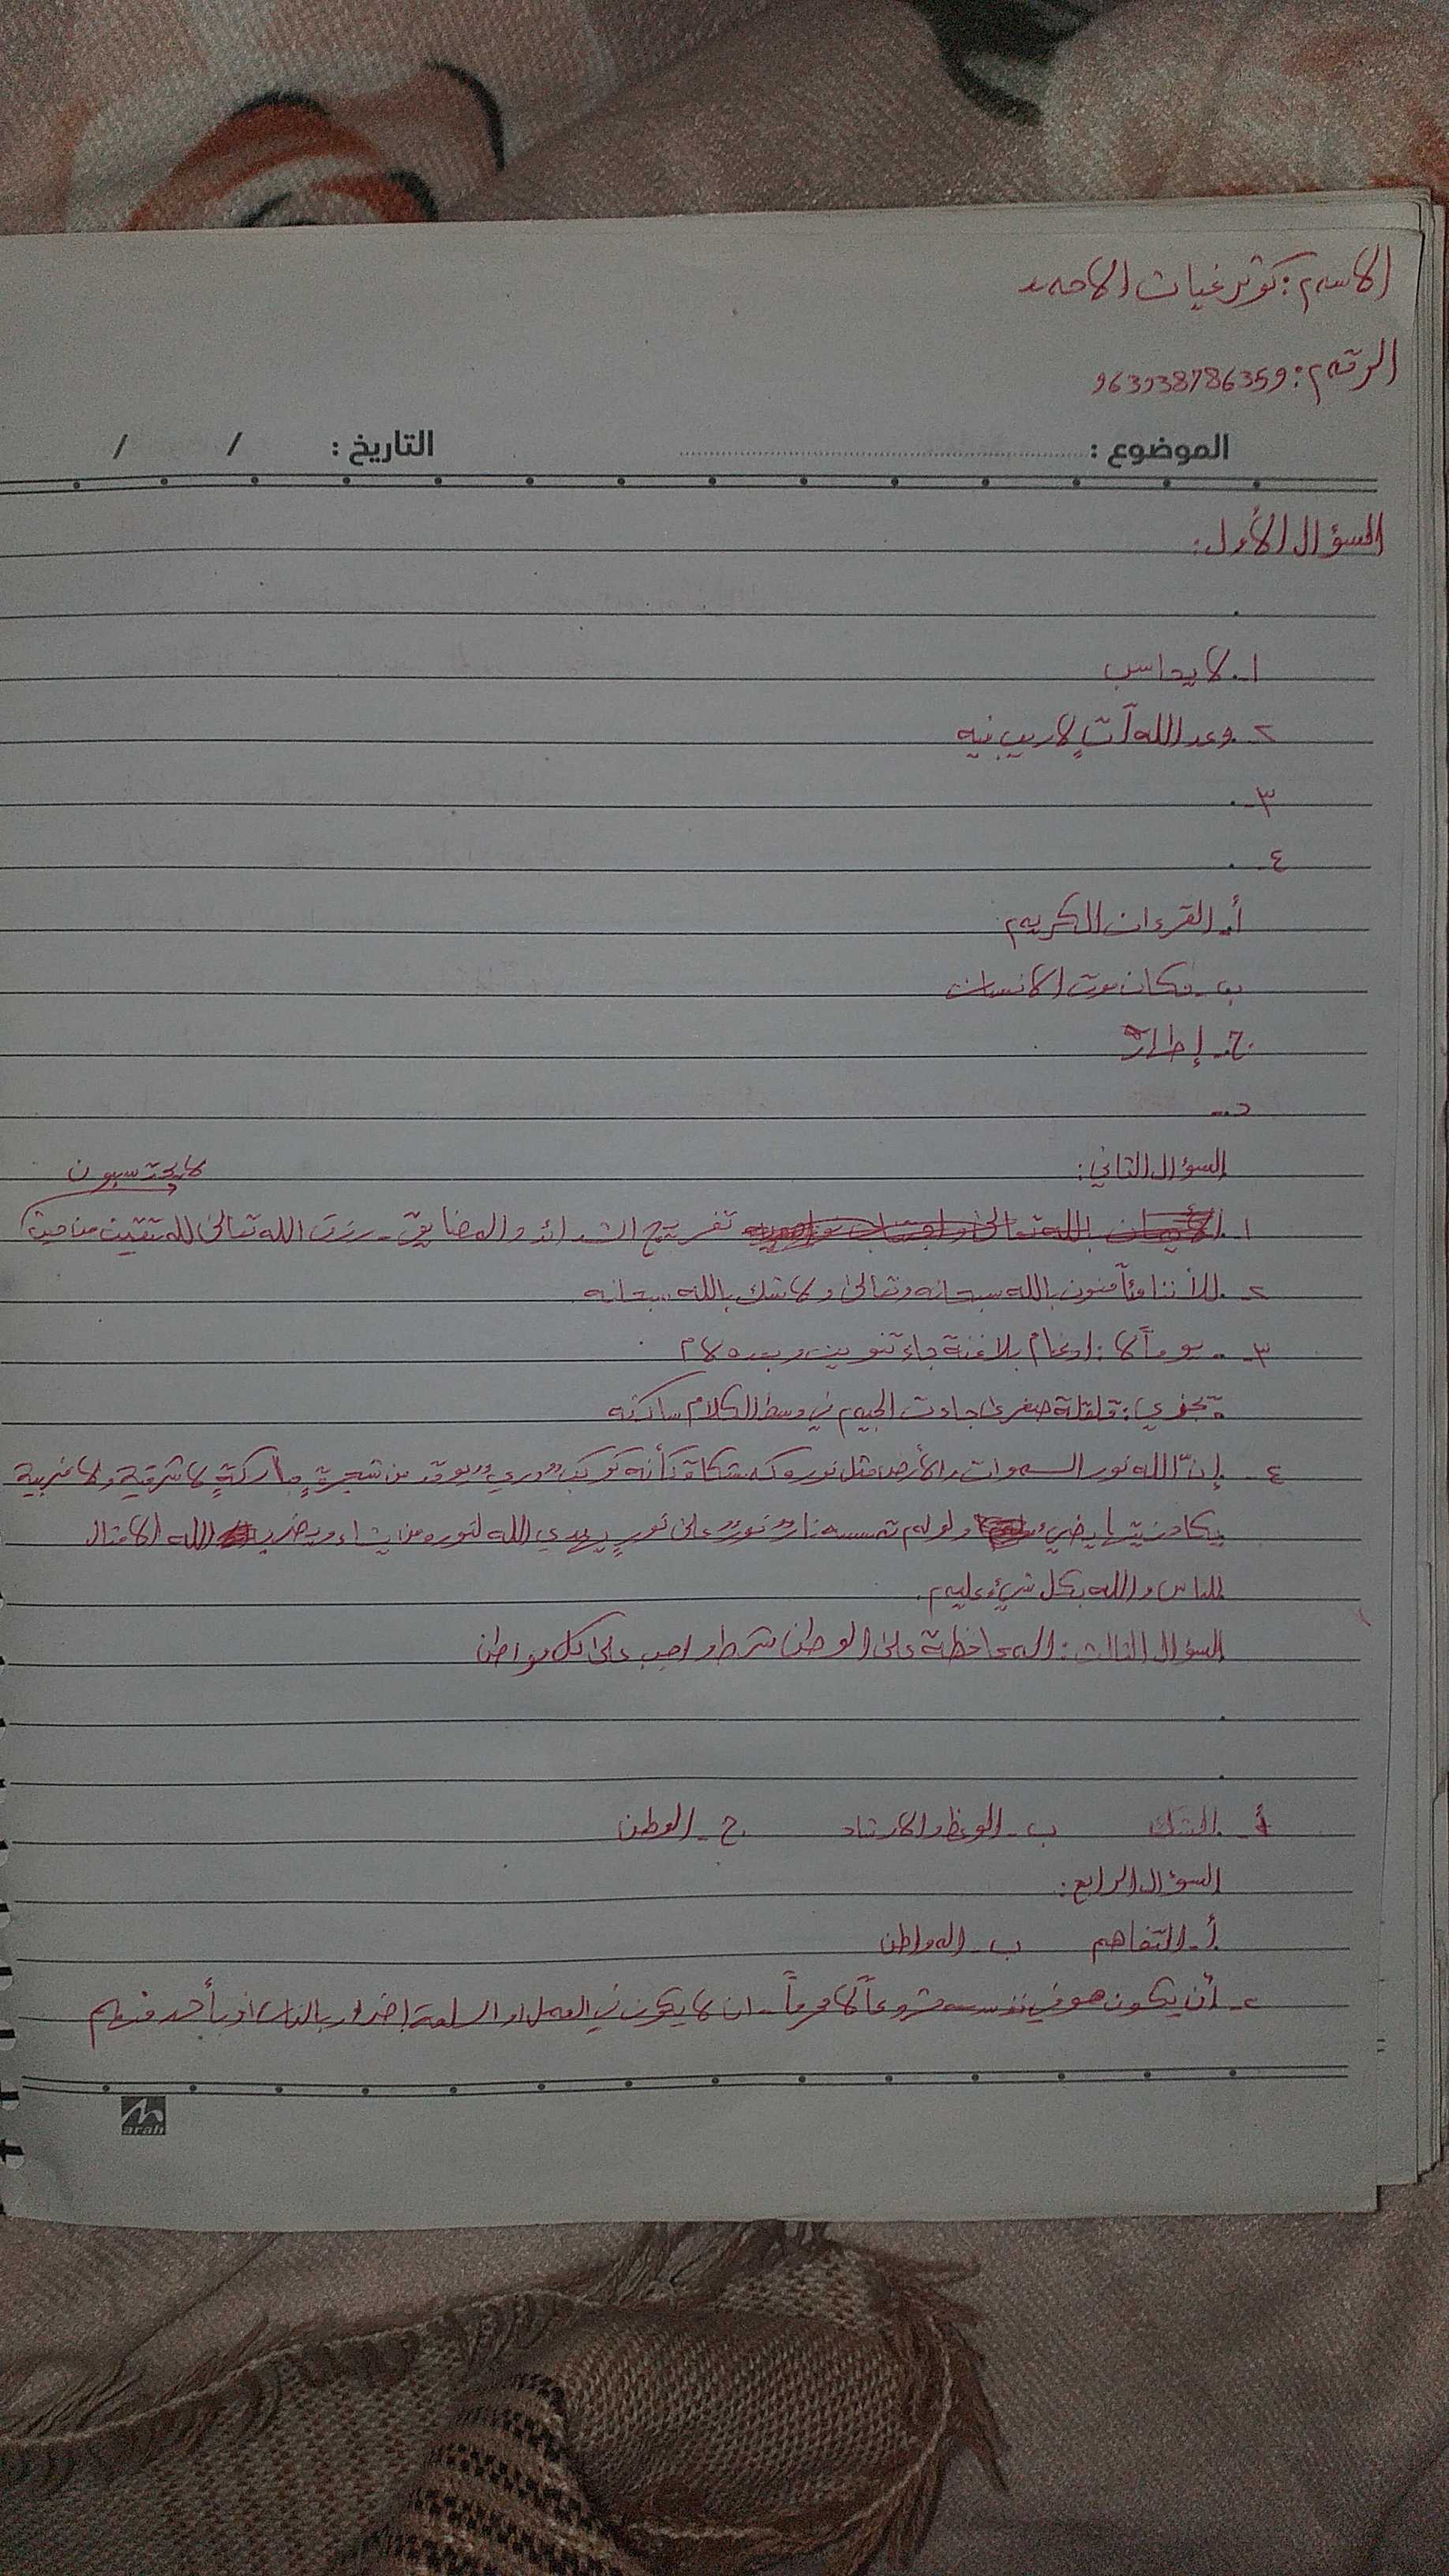 الاسم: كوثر غياث الاحمد
الرقم: 963938786359
الموضوع : التاريخ : / /
السؤال الأول:
.
١- لا يحاسب
٢- وعد الله آتٍ لاريب فيه
٣- .
٤- .
أ- القرءان الكريم
ب- مكان موت الانسان
ج- إطلاق
د-
السؤال الثاني:
لا يحتسبون
١- تفريج الشدائد والمضايق - رزق الله تعالى للمتقين من حيث
٢- لأننا مؤآمنون بالله سبحانه وتعالى ولا شك بالله سبحانه
٣- يوماً لا: إدغام بلا غنة جاء تنوين وبعده لام
تجزي: قلقلة صغرى جاءت الجيم في وسط الكلام ساكنه
٤- إنّ الله نور السموات والأرض مثل نوره كمشكاة كأنه كوكبٌ دري يوقد من شجرةٍ مباركةٍ لا شرقية ولا غربية
يكاد زيتها يضيء ولو لم تمسسه نارٌ نورٌ على نورٍ يهدي الله لنوره من يشاء ويضرب الله الامثال
للناس والله بكل شيء عليم.
السؤال الثالث: المحافظة على الوطن شرط واجب على كل مواطن
.
.
أ- الشك ب- الوعظ والارشاد ج- الوطن
السؤال الرابع:
أ- التفاهم ب- المواطن
٢- أن يكون هو في نفسه مشروعاً لا محرماً - ان لا يكون في العمل او السلعة إضرار بالناس أو بأحد منهم
arab